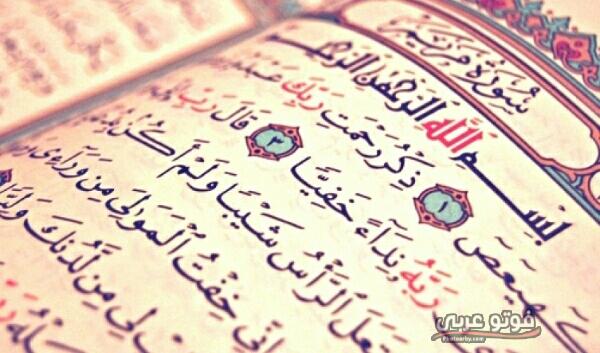 سُورَةُ مَرْيَمَ
بِسْمِ اللَّهِ الرَّحْمَٰنِ الرَّحِيمِ
كٓهيعٓصٓ ١ ذِكْرُ رَحْمَتِ رَبِّكَ
رَبَّهُ نِدَآءً خَفِيًّا ٣ قَالَ رَبِّ
ٱلرَّأْسُ شَيْبًا وَلَمْ أَكُنۢ
خِفْتُ ٱلْمَوَٰلِىَ مِن وَرَآءِى
لِى مِن لَّدُنكَ وَلِيًّا
فوتو عربي
Photoarby.com